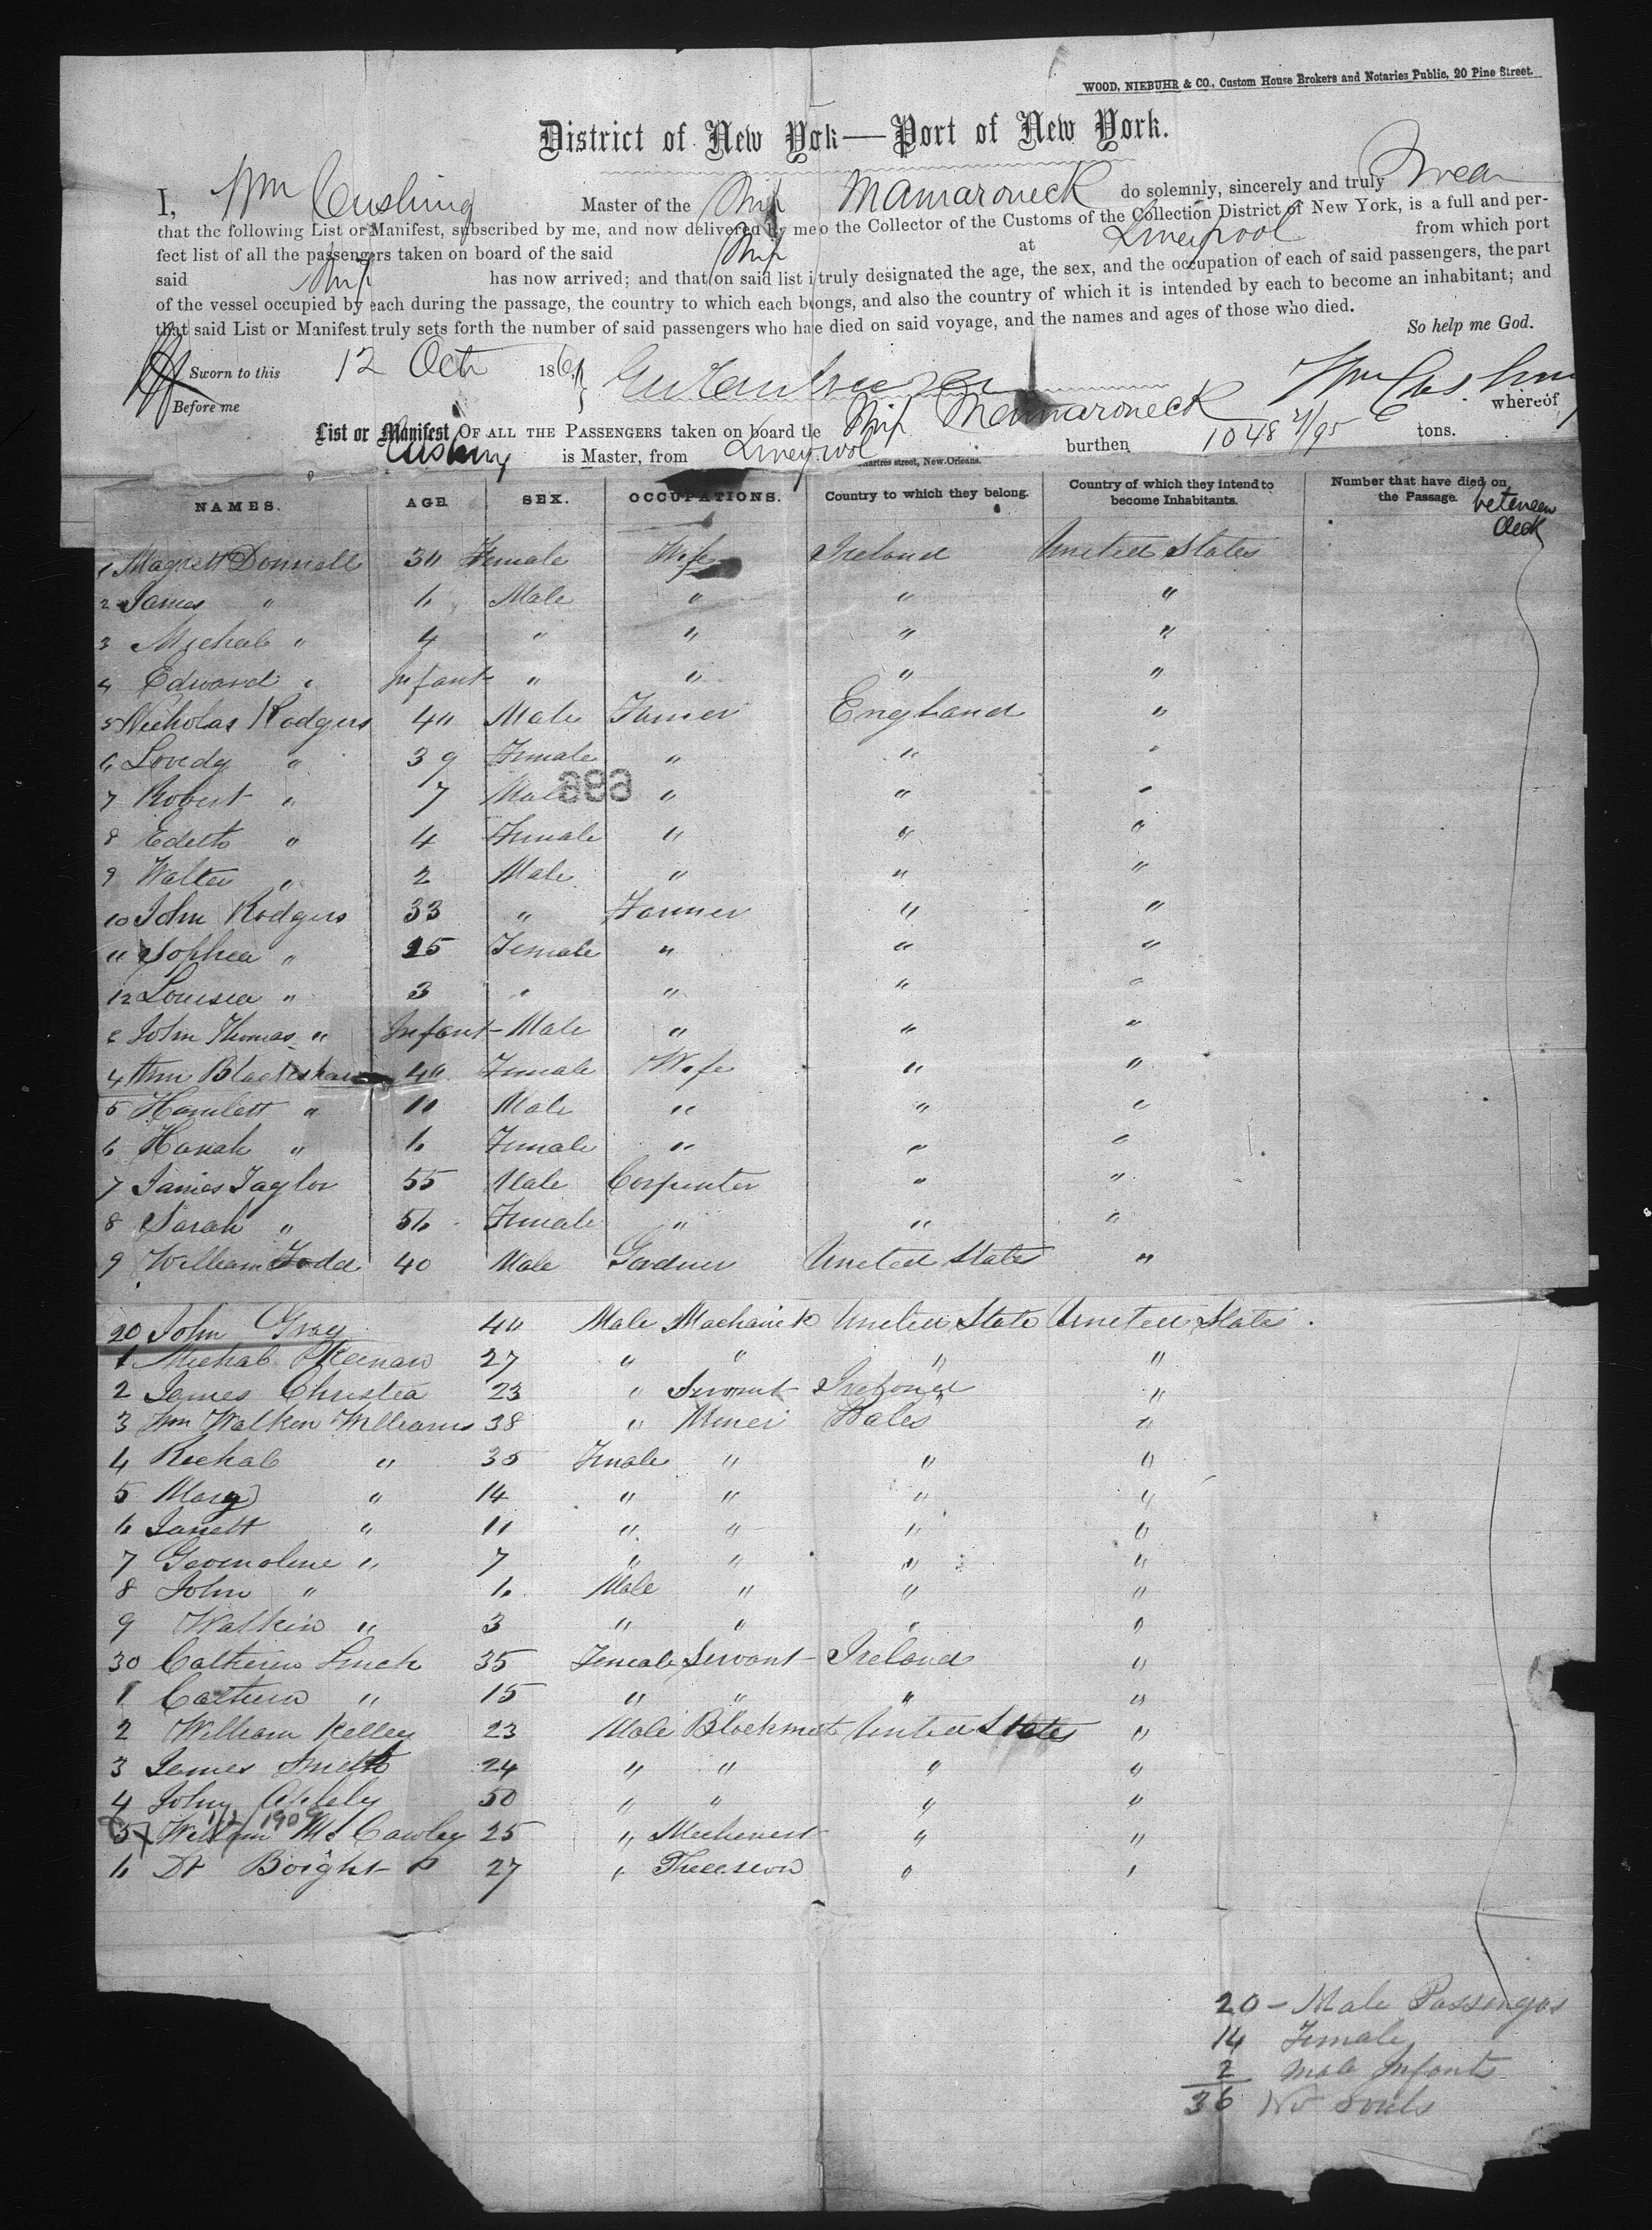 WOOD, NIEBUHR & CO., Custom House Brokers and Notaries Public, 20 Pine Street.
District of New Yok—Port of New York.
I, Wm Cushing Master of the Ship Mamaroneck do solemnly, sincerely and truly Swear
that the following List or Manifest, subscribed by me, and now delivered by me o the Collector of the Customs of the Collection District of New York, is a full and per-
fect list of all the passengers taken on board of the said Ship at Liverpool from which port
said Ship has now arrived; and that on said list i truly designated the age, the sex, and the occupation of each of said passengers, the part
of the vessel occupied by each during the passage, the country to which each b ongs, and also the country of which it is intended by each to become an inhabitant; and
that said List or Manifest truly sets forth the number of said passengers who ha e died on said voyage, and the names and ages of those who died.
So help me God.
Sworn to this 12 Oct 186
Before me
Wm Cushing
List or Manifest OF ALL THE PASSENGERS taken on board the Ship Mamaroneck whereof
Cushing is Master, from Liverpool burthen 1048 /95 tons.
artres street, New-Orleans.
NAMES. AGE SEX. OCCUPATIONS. Country to which they belong. Country of which they intend to become Inhabitants. Number that have died on the Passage.
between deck
1 Magrett Donnell 30 Female Wife Ireland United States
2 James " 6 Male " " "
3 Micheal " 4 " " " "
4 Edward " Infant " " " "
5 Nicholas Rodgers 40 Male Farmer England "
6 Lovedy " 39 Female " " "
7 Robert " 7 Male " " "
699
8 Edeth " 4 Female " " "
9 Walter " 2 Male " " "
10 John Rodgers 33 " Farmer " "
11 Sophea " 25 Female " " "
12 Louisea " 3 " " " "
John Thomas " Infant Male " " "
4 Ann Blackshaw 40 Female Wife " "
5 Hamlett " 10 Male " " "
6 Hanah " 6 Female " " "
7 James Taylor 55 Male Carpenter " "
8 Sarah " 56 Female " " "
9 William Todd 40 Male Gardner United States "
20 John Gray 40 Male Machanick United State United States
1 Micheal Keenan 27 " " " "
2 James Christea 23 " Servant Ireland "
3 Wm Walken Williams 38 " Miner Wales "
4 Rechal " 35 Female " " "
5 Mary " 14 " " " "
6 Janett " 11 " " " "
7 Gwenolene " 7 " " " "
8 John " 6 Male " " "
9 Watkin " 3 " " " "
30 Catheren Linch 35 Female Servant Ireland "
1 Cathern " 15 " " " "
2 William Kelley 23 Male Blacksmith United States "
3 James Smith 24 " " " "
4 John Apleby 50 " " " "
5 William McCawley 25 " " "
6 Dr Boight 27 " " "
20 – Male Passengers
14 Female
2 Male Infants
36 No Souls